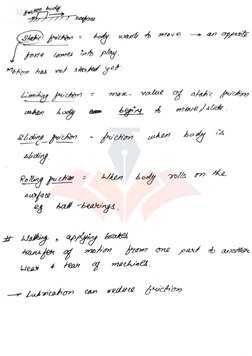 body
surface
Static friction = body wants to move → an opposite
force comes into play.
Motion has not started yet
Limiting friction = max. value of static friction
when body begins to move/slide.
Sliding friction - friction when body is
sliding
Rolling friction = When body rolls on the
surface.
eg ball-bearings.
# Walking, applying brakes
transfer of motion from one part to another
wear & tear of machines.
→ Lubrication can reduce friction